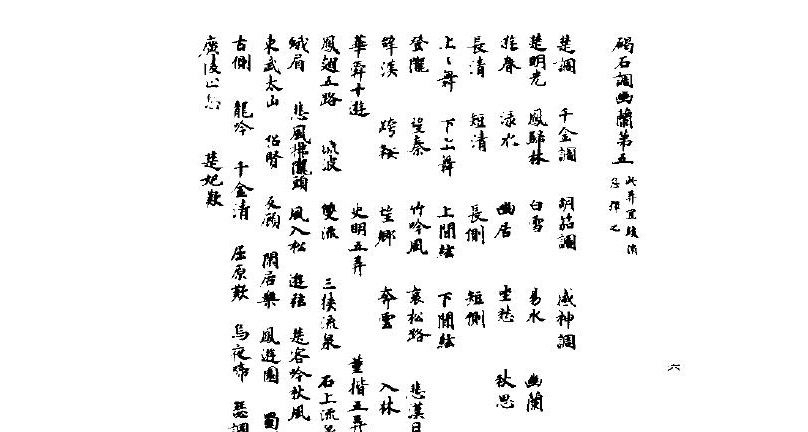 六
碣石調幽蘭第五 此弄宜緩消
息彈之
楚調 千金調 胡笳調 感神調
楚明光 鳳歸林 白雪 易水 幽蘭
遊春 淥水 幽居 坐愁 秋思
長清 短清 長側 短側
上〻舞 下上舞 上間絃 下間絃
登隴 望秦 竹吟風 哀松路 悲漢月
辞漢 跨鞍 望鄉 奔雲 入林
華舜十遊 史明五弄 董揩五弄
鳳翅五路 流波 雙流 三挾流泉 石上流
蛾眉 悲風拂隴頭 風入松 遊絃 楚客吟秋風
東武太山 招賢 反顧 閑居樂 鳳遊園 蜀
古側 龍吟 千金清 屈原歎 烏夜啼 瑟調
廣陵止息 楚妃歎